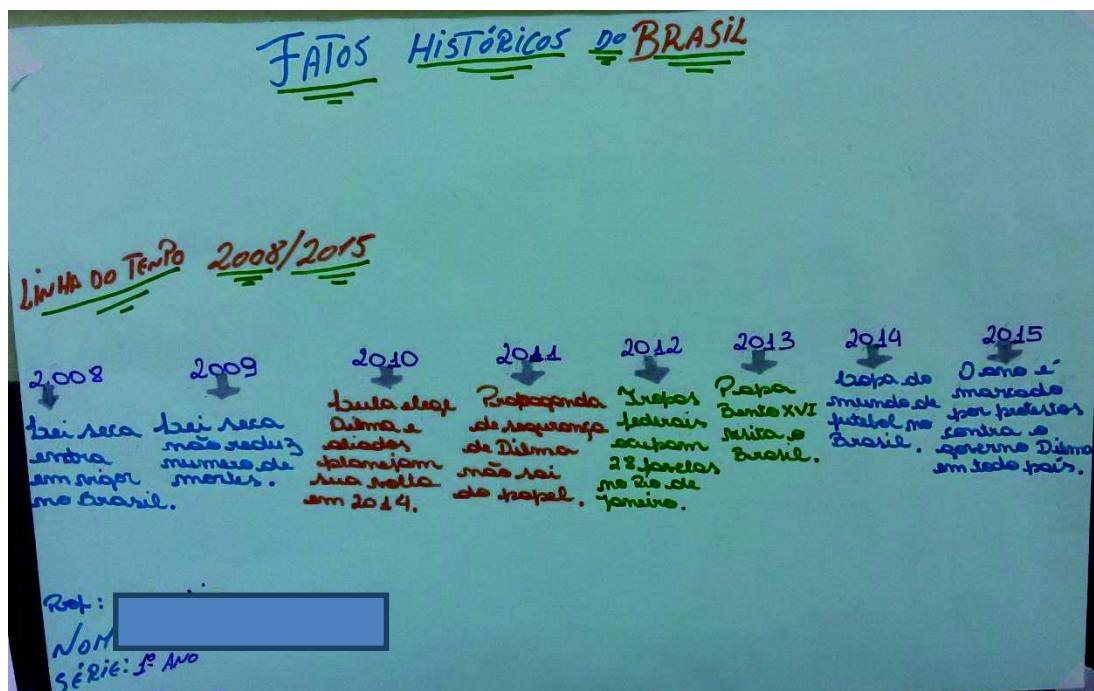 FATOS HISTÓRICOS DO BRASIL
LINHA DO TEMPO 2008/2015
2.008
Lei seca
entra
em vigor
no Brasil.
2009
Lei seca
não reduz
numero de
mortes.
2010
Lula elege
Dilma e
aliados
planejam
sua volta
em 2014.
2011
Propaganda
de segurança
de Dilma
não sai
do papel.
2012
Tropas
federais
ocupam
28 favelas
no Rio de
Janeiro.
2013
Papa
Bento XVI
visita o
Brasil.
2014
Copa do
mundo de
futebol no
Brasil.
2015
O ano é
marcado
por protestos
contra o
governo Dilma
em todo país.
Prof:
SÉRIE: 1º ANO